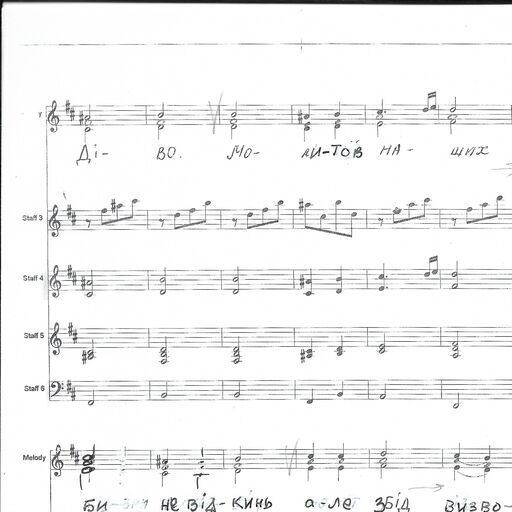 Y
Ді- ВО. МО- ли-Тов НА- ших
Staff 3
Staff 4
Staff 5
Staff 6
Melody
БИ- не Від-кинь а-ле збід визво-